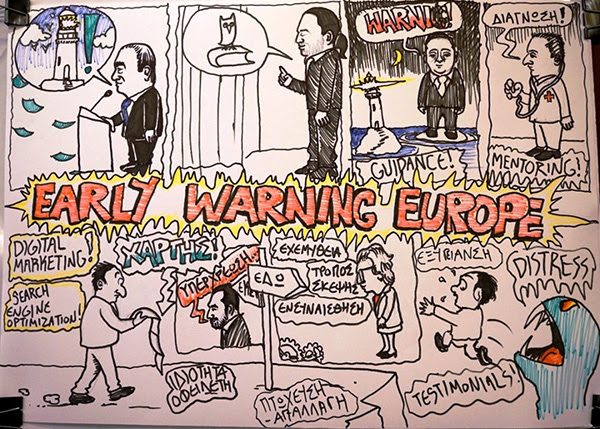 !
WARNI
ΔΙΑΓΝΩΣΗ!
GUIDANCE!
MENTORING!
EARLY WARNING EUROPE
DIGITAL
MARKETING!
SEARCH
ENGINE
OPTIMIZATION!
ΧΑΡΤΗΣ!
ΥΠΕΡΧΡΕΩΣΗ!
ΕΔΩ
ΕΧΕΜΥΘΕΙΑ
ΤΡΟΠΟΣ
ΣΚΕΨΗΣ
ΕΝΣΥΝΑΙΣΘΗΣΗ
ΕΞΥΓΙΑΝΣΗ
DISTRESS
ΙΔΙΟΤΗΤΑ
ΟΦΕΙΛΕΤΗ
ΠΤΩΧΕΥΣΗ
-ΑΠΑΛΛΑΓΗ
TESTIMONIALS!